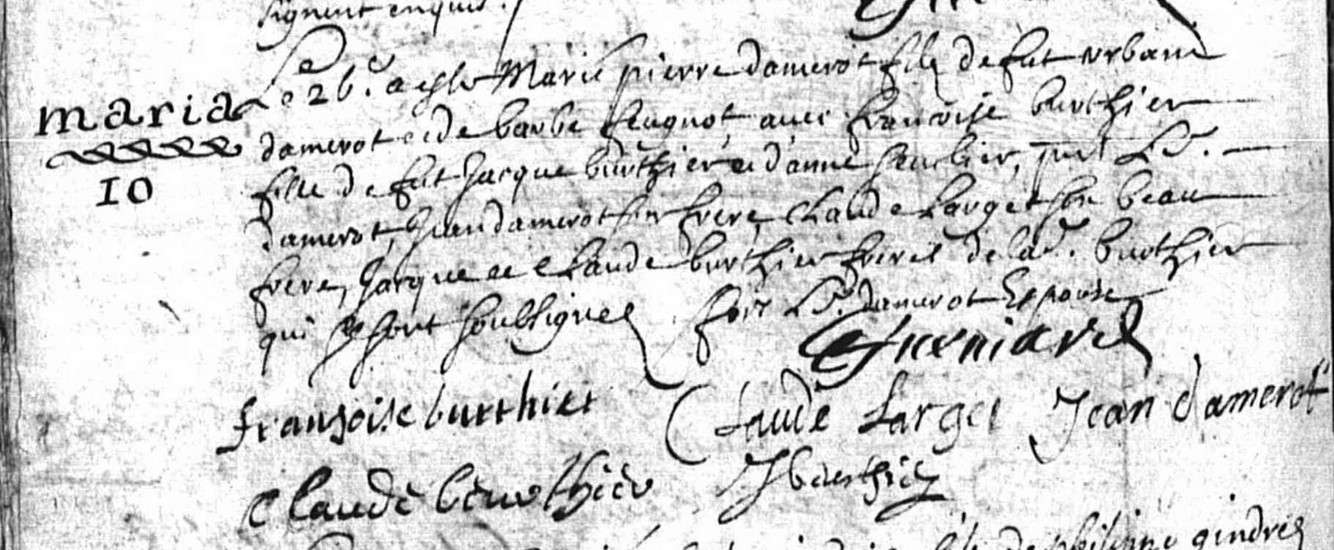 signent enquis.
Le 26.e a esté Marié pierre damerot filz de fut urbain
maria
damerot et de barbe feugnot, avec francoise burthier
10
fille de fut Jacque burthier et d'anne
damerot, Jean damerot son frere, Claude Larget son beau
frere, Jacque et Claude burthier freres de lad. burthier
qui se sont soubsignez fors Led. damerot Espoux
fransoise burthier Claude Larget Jean damerot
Claude beurthier J burthier
philippe gindrez